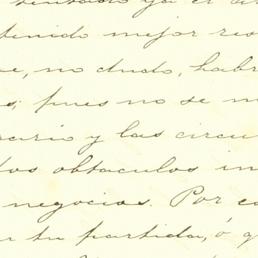 ya el
tenido mejor res
e, no dudo, habr
s; pues no se m
sario y las circu
los obstaculos in
negocios. Por co
tu partida, ó q